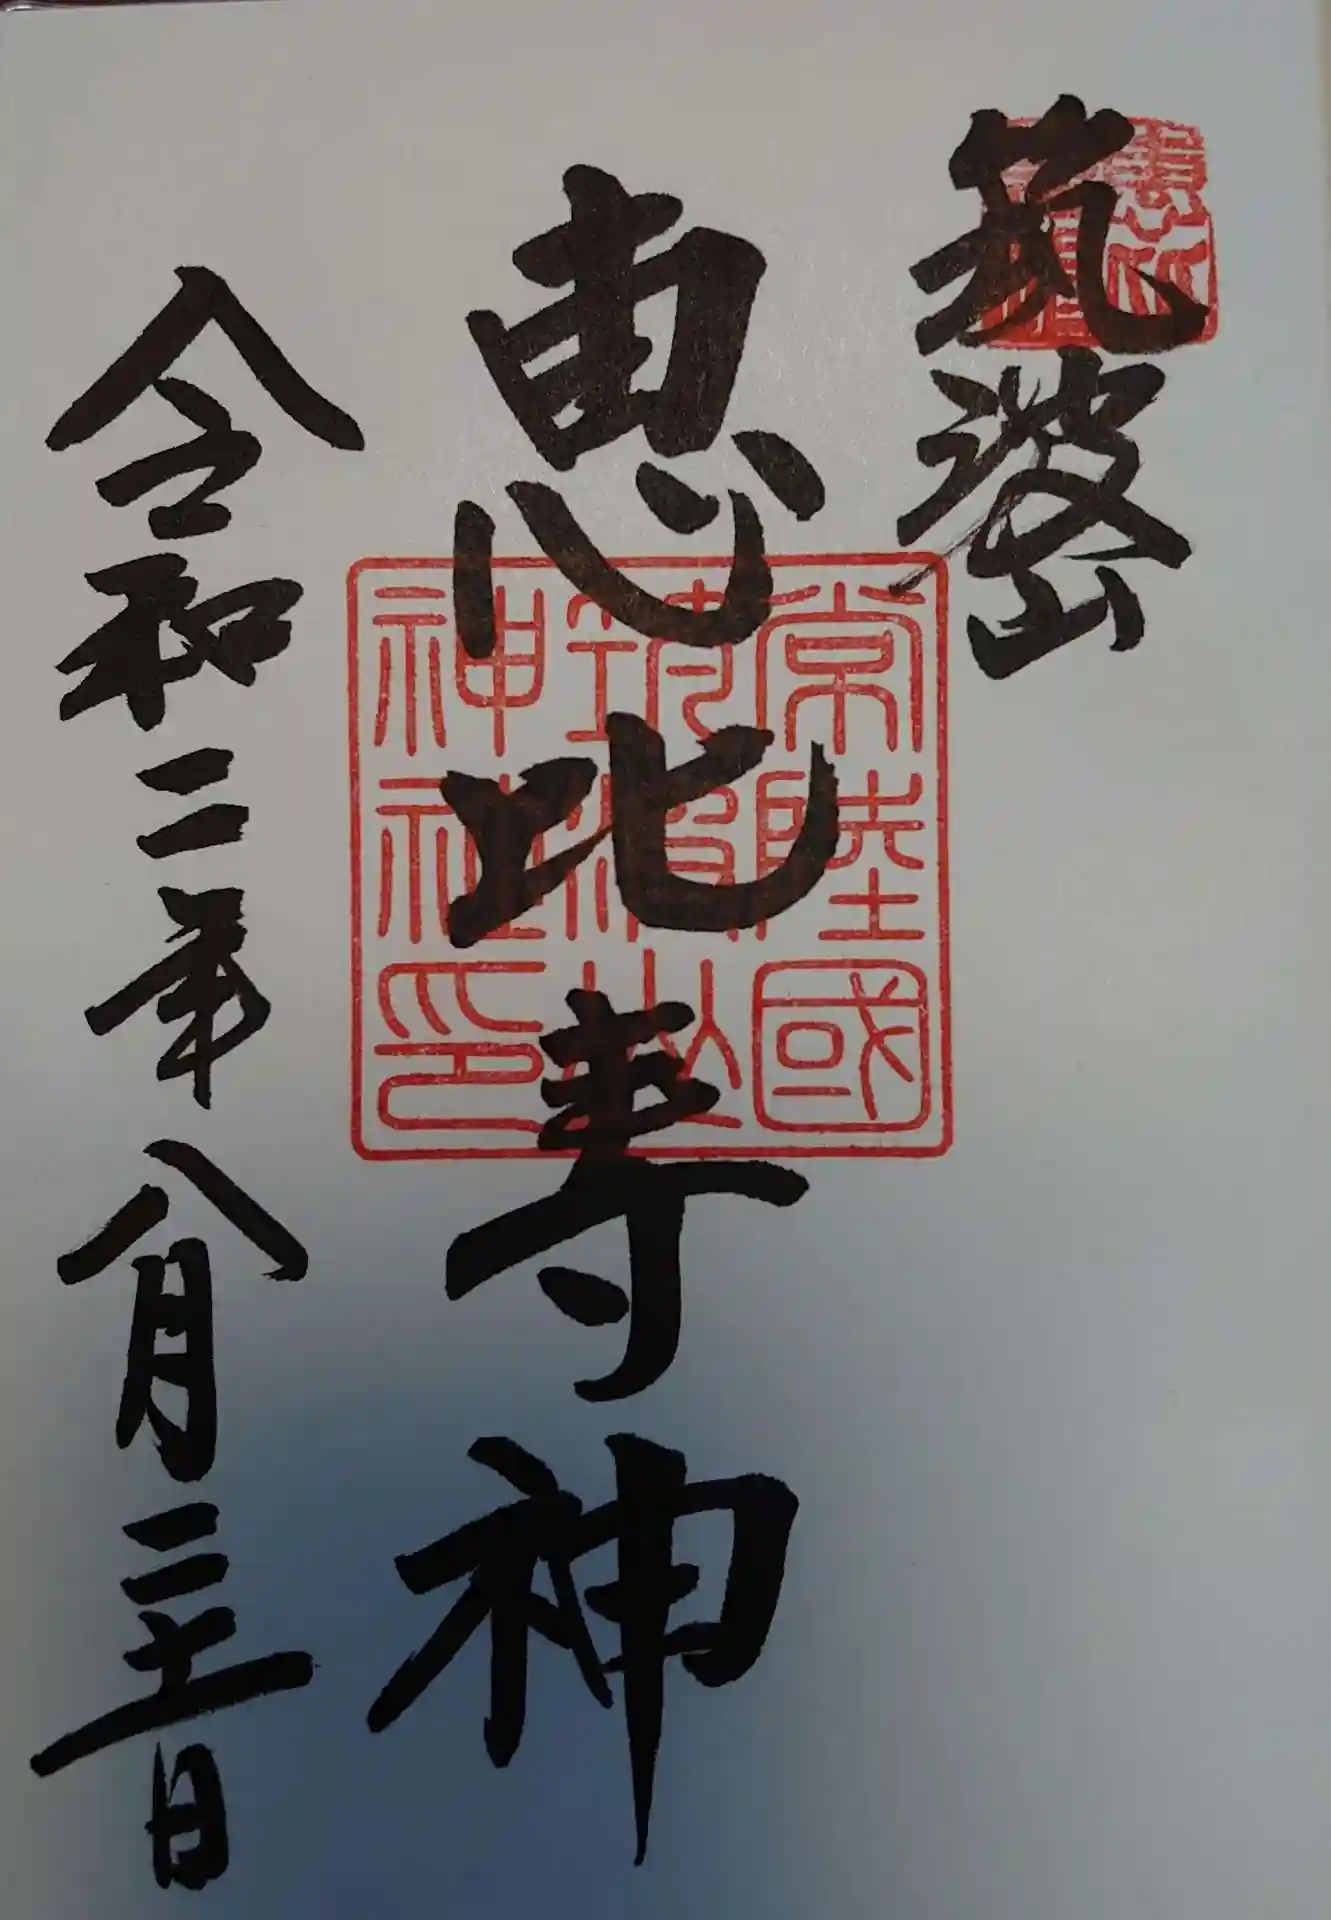 筑波山
恵比寿神
常陸國
筑波山
神社印
令和二年八月二十一日